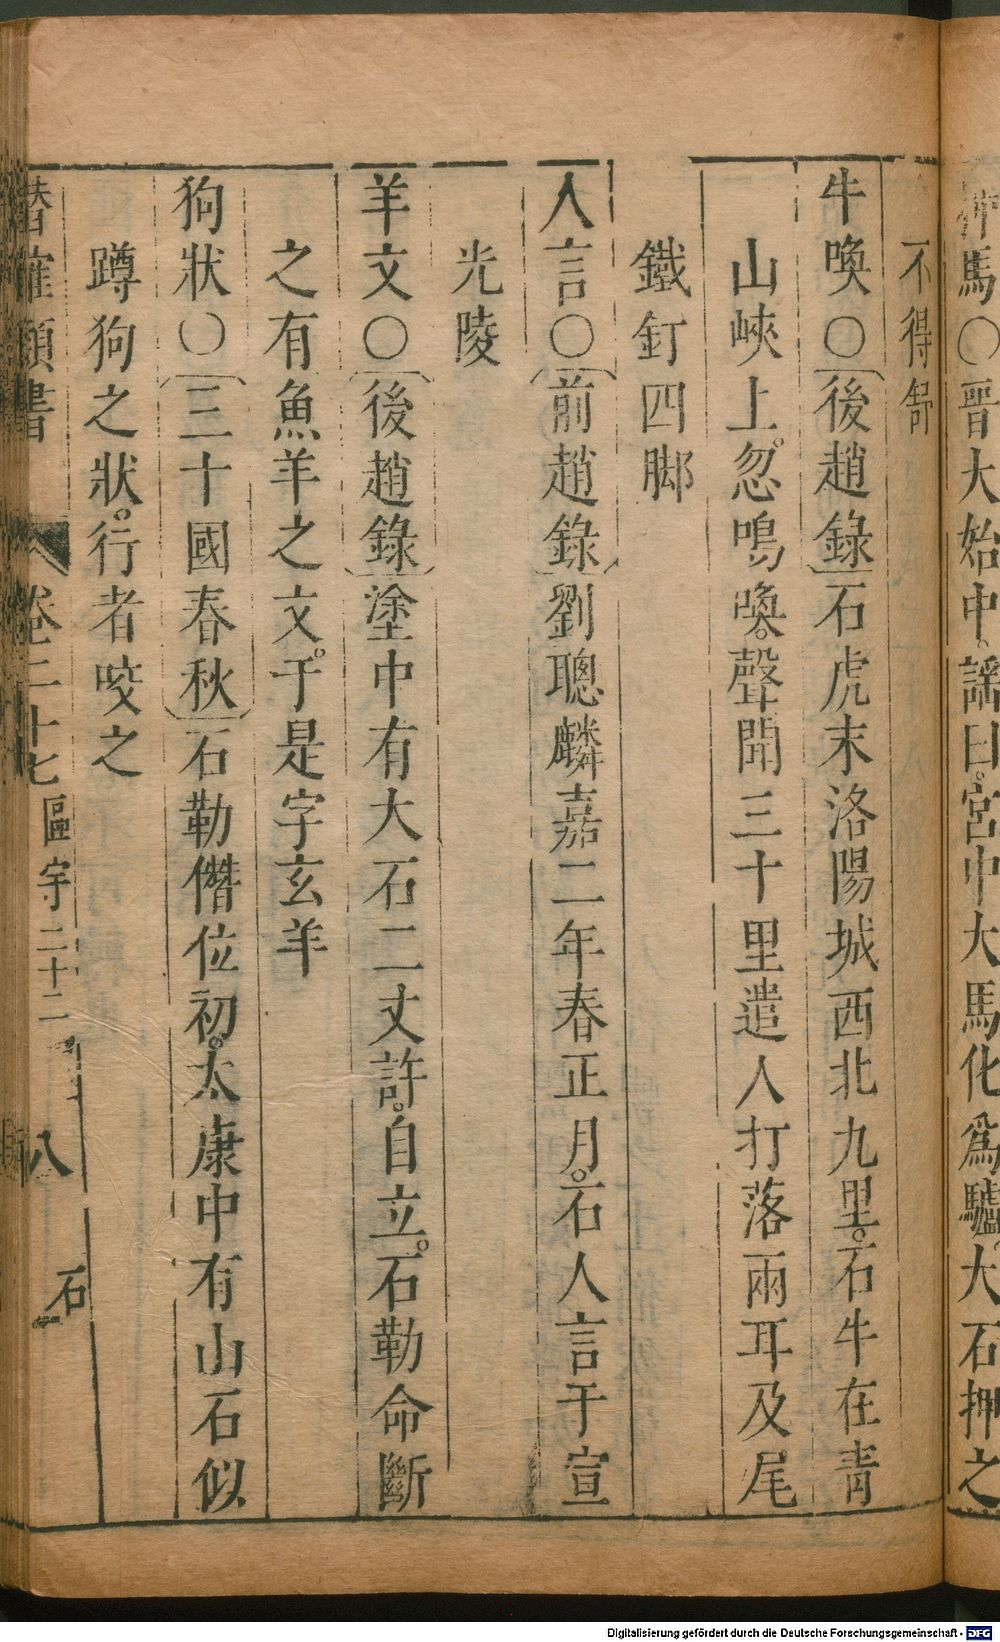 押馬〇晉大始中謠曰宮中大馬化爲驢大石押之
不得舒
牛喚〇後趙錄石虎末洛陽城西北九里石牛在青
山峽上忽鳴喚聲聞三十里遣人打落兩耳及尾
鐵釘四脚
人言〇前趙錄劉聰麟嘉二年春正月石人言于宣
光陵
羊文〇後趙錄塗中有大石二丈許自立石勒命斷
之有魚羊之文于是字玄羊
狗狀〇三十國春秋石勒僭位初太康中有山石似
蹲狗之狀行者咬之
潛確類書 卷二十七 區宇二十二 八 石
Digitalisierung gefördert durch die Deutsche Forschungsgemeinschaft - DFG